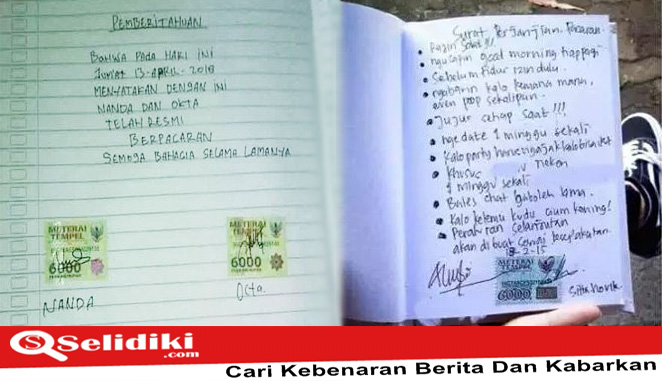 PEMBERITAHUAN
BAHWA PADA HARI INI
Jumat 13-APRIL-2018
MENYATAKAN DENGAN INI
NANDA DAN OKTA
TELAH RESMI
BERPACARAN
SEMOGA BAHAGIA SELAMA LAMANYA
METERAI
TEMPEL
6000
NANDA
METERAI
TEMPEL
6000
Okta.
Surat Perjanjian Pacaran.
Rajin Solat!!!
ngucapin good morning tiap pagi
Sebelum tidur izin dulu.
ngabarin kalo kemana mana,
even pup sekalipun.
Jujur setiap saat!!!
ngedate 1 minggu sekali
Kalo party harus ngajak kalo bisa
Khusus
1 minggu sekali
Bales chat gaboleh lama.
Kalo ketemu kudu cium kening!
Peraturan selanjutnya
akan dibuat sesuai kesepakatan
18-2-15
METERAI
TEMPEL
6000
Selidiki
.com
Cari Kebenaran Berita Dan Kabarkan